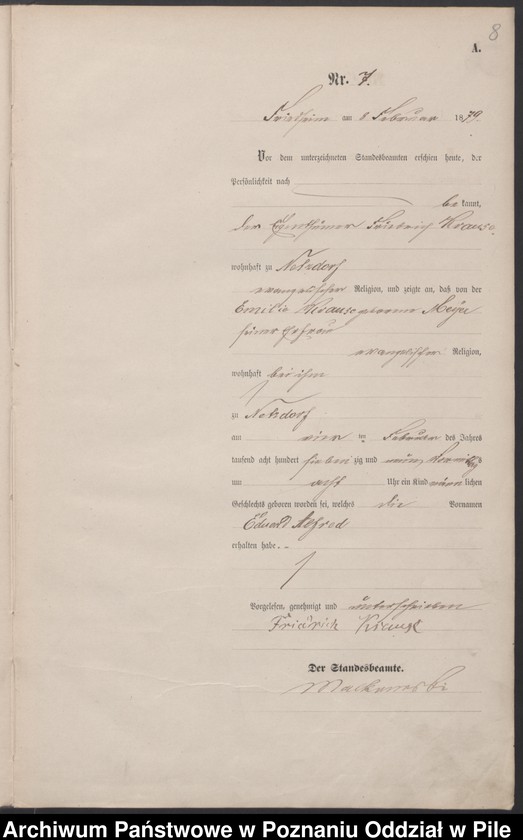 8
A.
Nr. 7.
Friedheim am 8 Februar 1879.
Vor dem unterzeichneten Standesbeamten erschien heute, der
Persönlichkeit nach
be kannt,
der Eigenthümer Friedrich Krause
wohnhaft zu Netzdorf
evangelischer Religion, und zeigte an, daß von der
Emilie Krause geborene Meyer
seiner Ehefrau
evangelischer Religion,
wohnhaft bei ihm
zu Netzdorf
am vier ten Februar des Jahres
tausend acht hundert sieben zig und neun, Vormittags
um acht Uhr ein Kind männ lichen
Geschlechts geboren worden sei, welches die Vornamen
Eduard Alfred
erhalten habe. -
Vorgelesen, genehmigt und unterschrieben
Friedrich Krause
Der Standesbeamte.
Archiwum Państwowe w Poznaniu Oddział w Pile